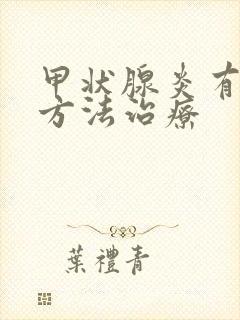 甲状腺炎有
方法治疗
葉禮青